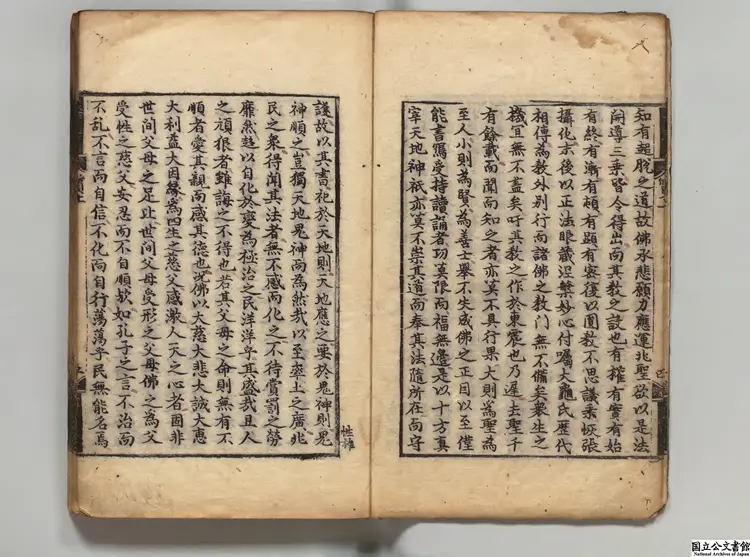 知有超脫之道故佛承悲願力應運兆聖欲以是法
開導三乗皆令得出而其教之設也有權有實有始
有終有漸有頓有顕有宻復以圓教不思議乗恢張
攝化末後以正法眼蔵涅槃妙心付嘱大龜氏歴代
相傳為教外别行而諸佛之教門無不備矣衆生之
機冝無不盡矣吁其教之作於東震也乃遲去聖千
有餘載而聞而知之者亦莫不具行果大則為聖為
至人小則為賢為善士舉不失成佛之正因以至儻
能書寫受持讀誦者功莫限而福無邊是以十方真
宰天地神祇亦莫不崇其道而奉其法隨所在而守
護故以其書祀於天地則天地應之要於鬼神則鬼
神順之豈獨天地鬼神而為然哉以至率土之廣兆
民之衆得聞其法者無不感而化之不待賞罰之勞
靡然趍以自化於變為極治之民洋洋乎其盛哉且人
之頑狠者雖誨之不得也若其父母之命則無有不
順者愛其親而感其德也况佛以大慈大悲大誠大惠
大利益大因縁為四生之慈父感激人天之心者固非
世間父母之足比世間父母受形之父母佛之為父
受性之慈父安忍而不自順欤如孔子之言不治而
不乱不言而自信不化而自行蕩蕩乎民無能名焉
国立公文書館
National Archives of Japan